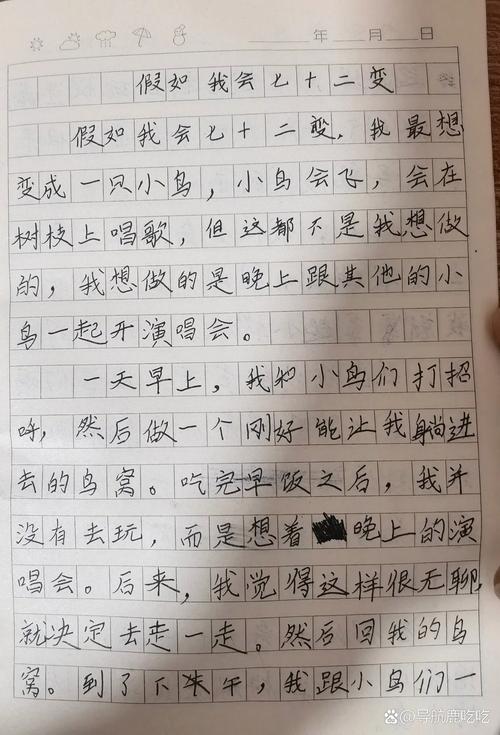 年 月 日
假如我会七十二变
假如我会七十二变，我最想
变成一只小鸟，小鸟会飞，会在
树枝上唱歌，但这都不是我想做
的，我想做的是晚上跟其他的小
鸟一起开演唱会。
一天早上，我和小鸟们打招
呼，然后做一个刚好能让我躺进
去的鸟窝。吃完早饭之后，我并
没有去玩，而是想着晚上的演
唱会。后来，我觉得这样很无聊，
就决定去走一走。然后回我的鸟
窝。到了下午，我跟小鸟们一
@导航鹿吃吃